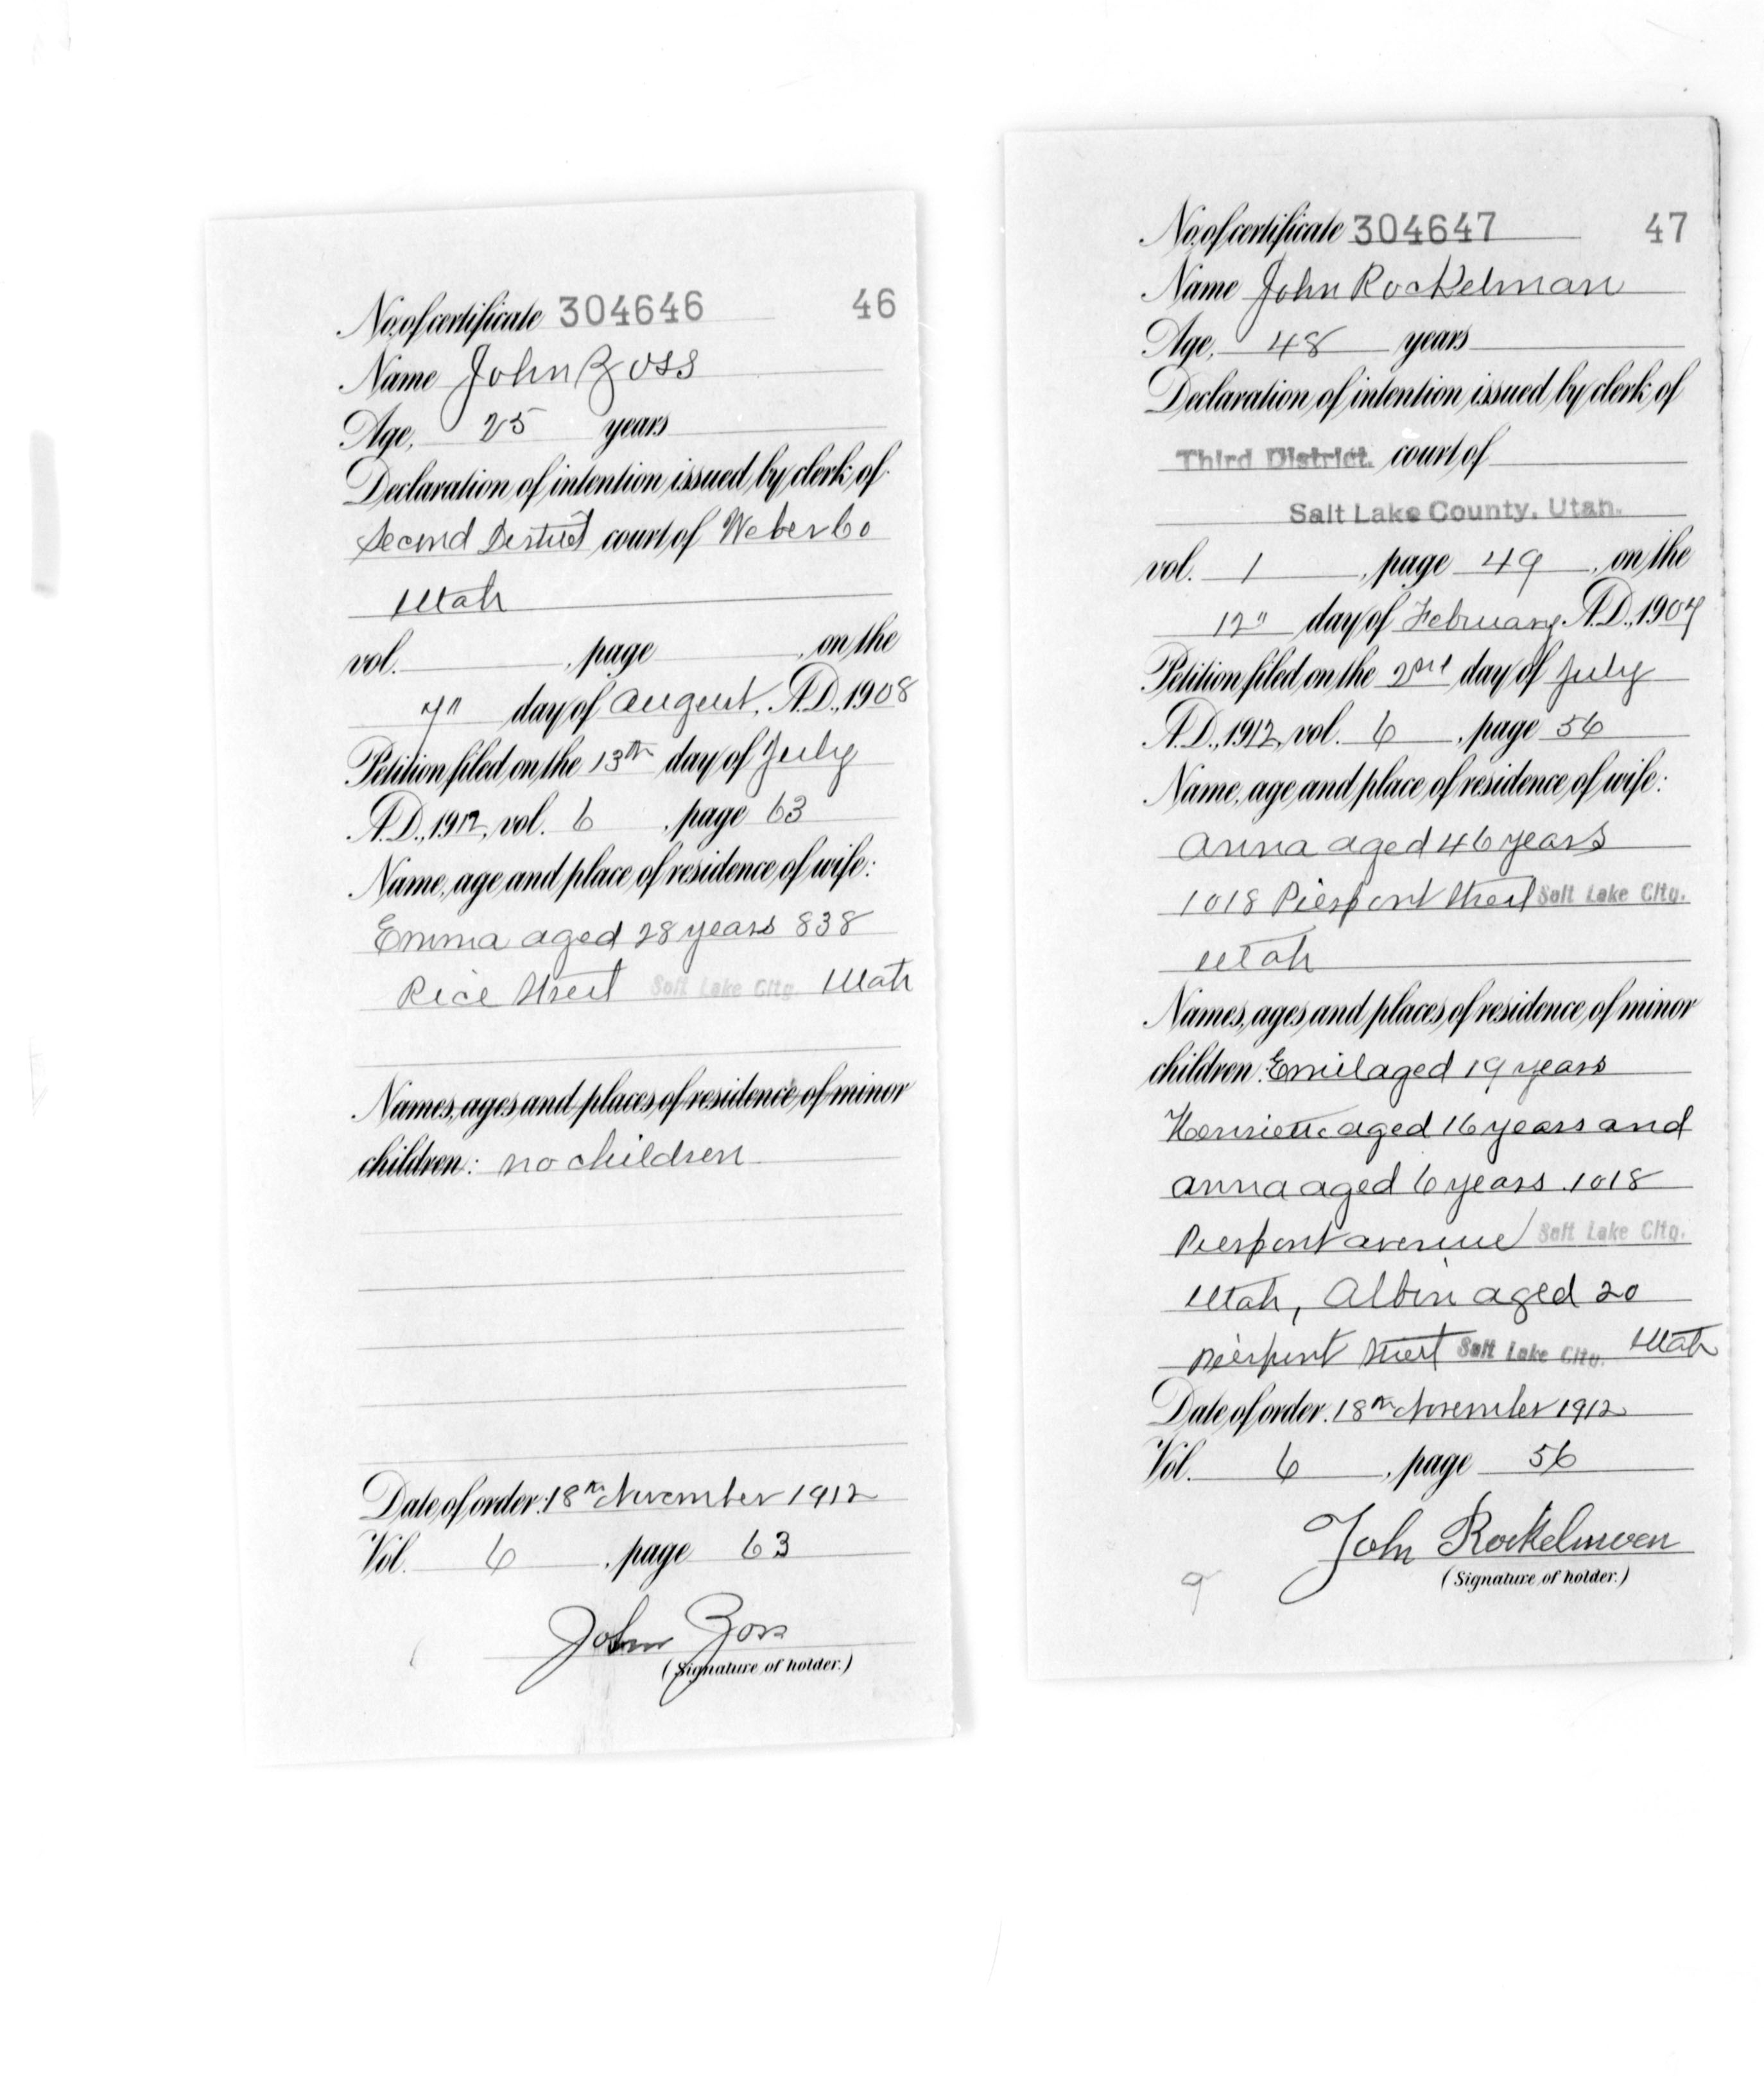 No. of certificate 304646 46
Name John Zoss
Age, 25 years
Declaration of intention issued by clerk of
Second District court of Weber Co
Utah
vol. , page , on the
7" day of August, A.D., 1908
Petition filed on the 13th day of July
A.D., 1912, vol. 6 , page 63
Name, age and place of residence of wife:
Emma aged 28 years 838
Rice Street Salt Lake City. Utah
Names, ages and places of residence of minor
children: no children
Date of order: 18th November 1912
Vol. 6 , page 63
John Zoss
(Signature of holder.)
No. of certificate 304647 47
Name John Rockelman
Age, 48 years
Declaration of intention issued by clerk of
Third District. court of
Salt Lake County, Utah.
vol. 1 , page 49 , on the
12" day of February, A.D., 1907
Petition filed on the 2nd day of July
A.D., 1912, vol. 6 , page 56
Name, age and place of residence of wife:
Anna aged 46 years
1018 Pierpont Street Salt Lake City.
Utah
Names, ages and places of residence of minor
children: Emil aged 19 years
Henriette aged 16 years and
Anna aged 6 years 1018
Pierpont avenue Salt Lake City.
Utah, Albin aged 20
Pierpont Street Salt Lake City. Utah
Date of order: 18th November 1912
Vol. 6 , page 56
John Rockelman
(Signature of holder.)